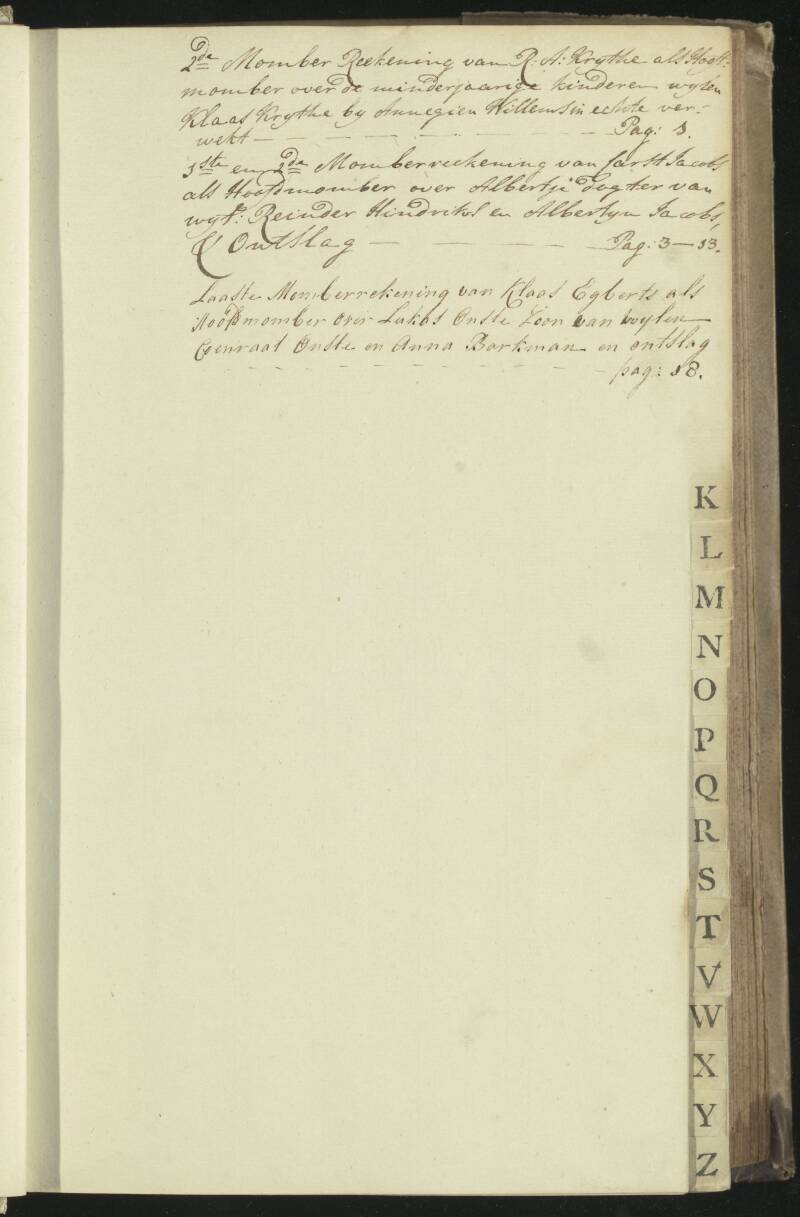 2de Momber Reekening van R: A: Krythe als Hooft-
momber over de minderjaarige kinderen wylen
Klaas Krythe by Annegien Willems in echte ver-
wekt — — — — — — Pag: 1.
1ste en 2de Momberreekening van Jacobs
als Hoofdmomber over Albertje Dogter van
wyl: Reinder Hindriks en Albertyn Jacobs,
& Ontslag — — — — Pag: 3—13.
Laaste Momberrekening van Klaas Egberts als
Hoofdmomber over Lukas Onste Zoon van wylen
Coenraat Onste en Anna Borkman en ontslag
— — — — — — — pag: 18.
K
L
M
N
O
P
Q
R
S
T
V
W
X
Y
Z